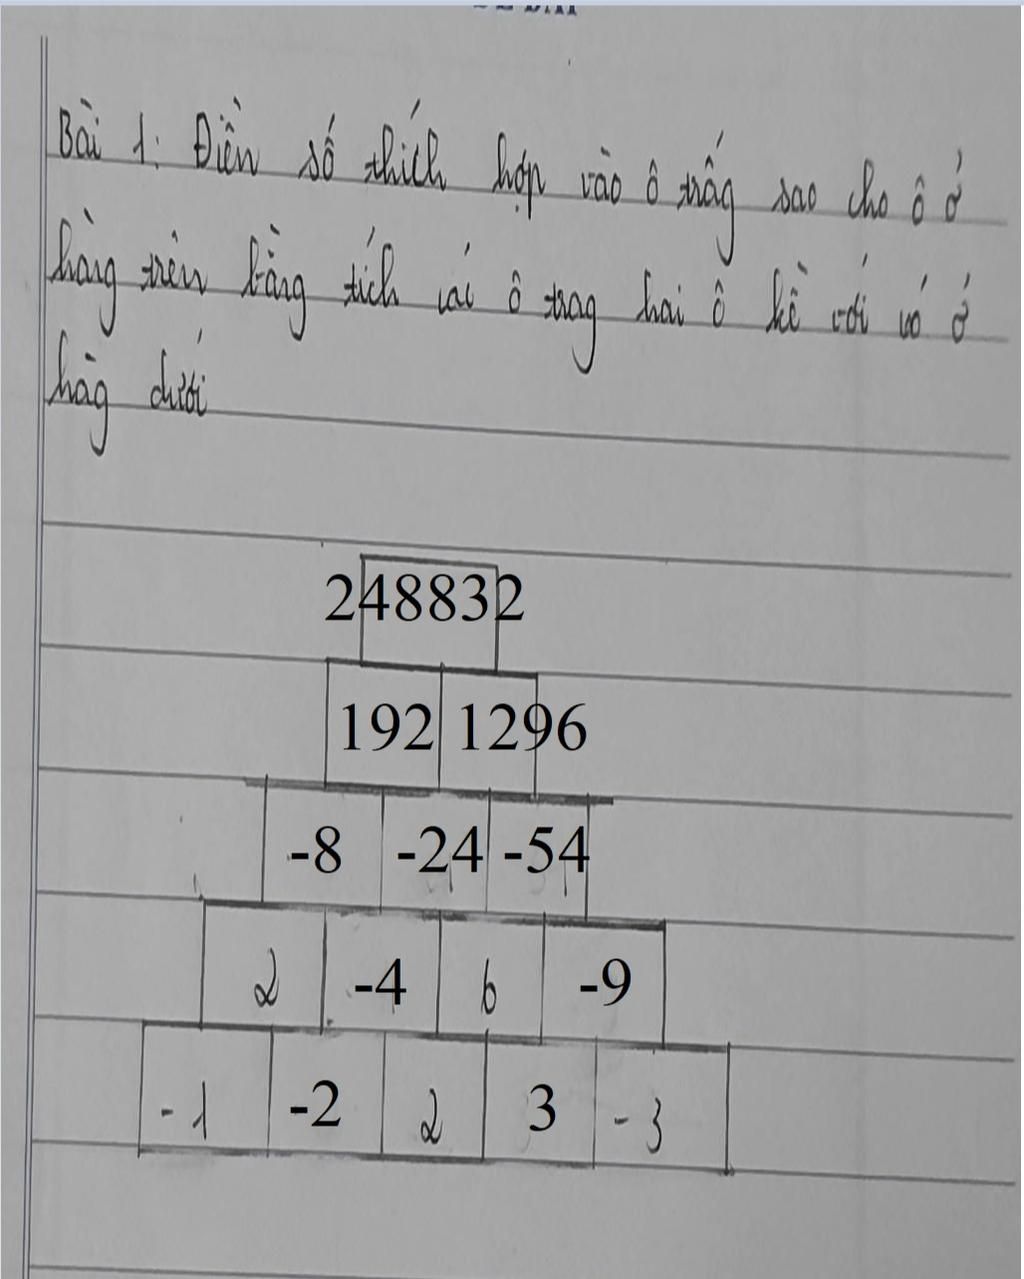 Bài 1: Điền số thích hợp vào ô trống sao cho ô ở
hàng trên bằng tích các ô trong hai ô kề với nó ở
hàng dưới
248832
192 1296
-8 -24 -54
2 -4 6 -9
-1 -2 2 3 -3